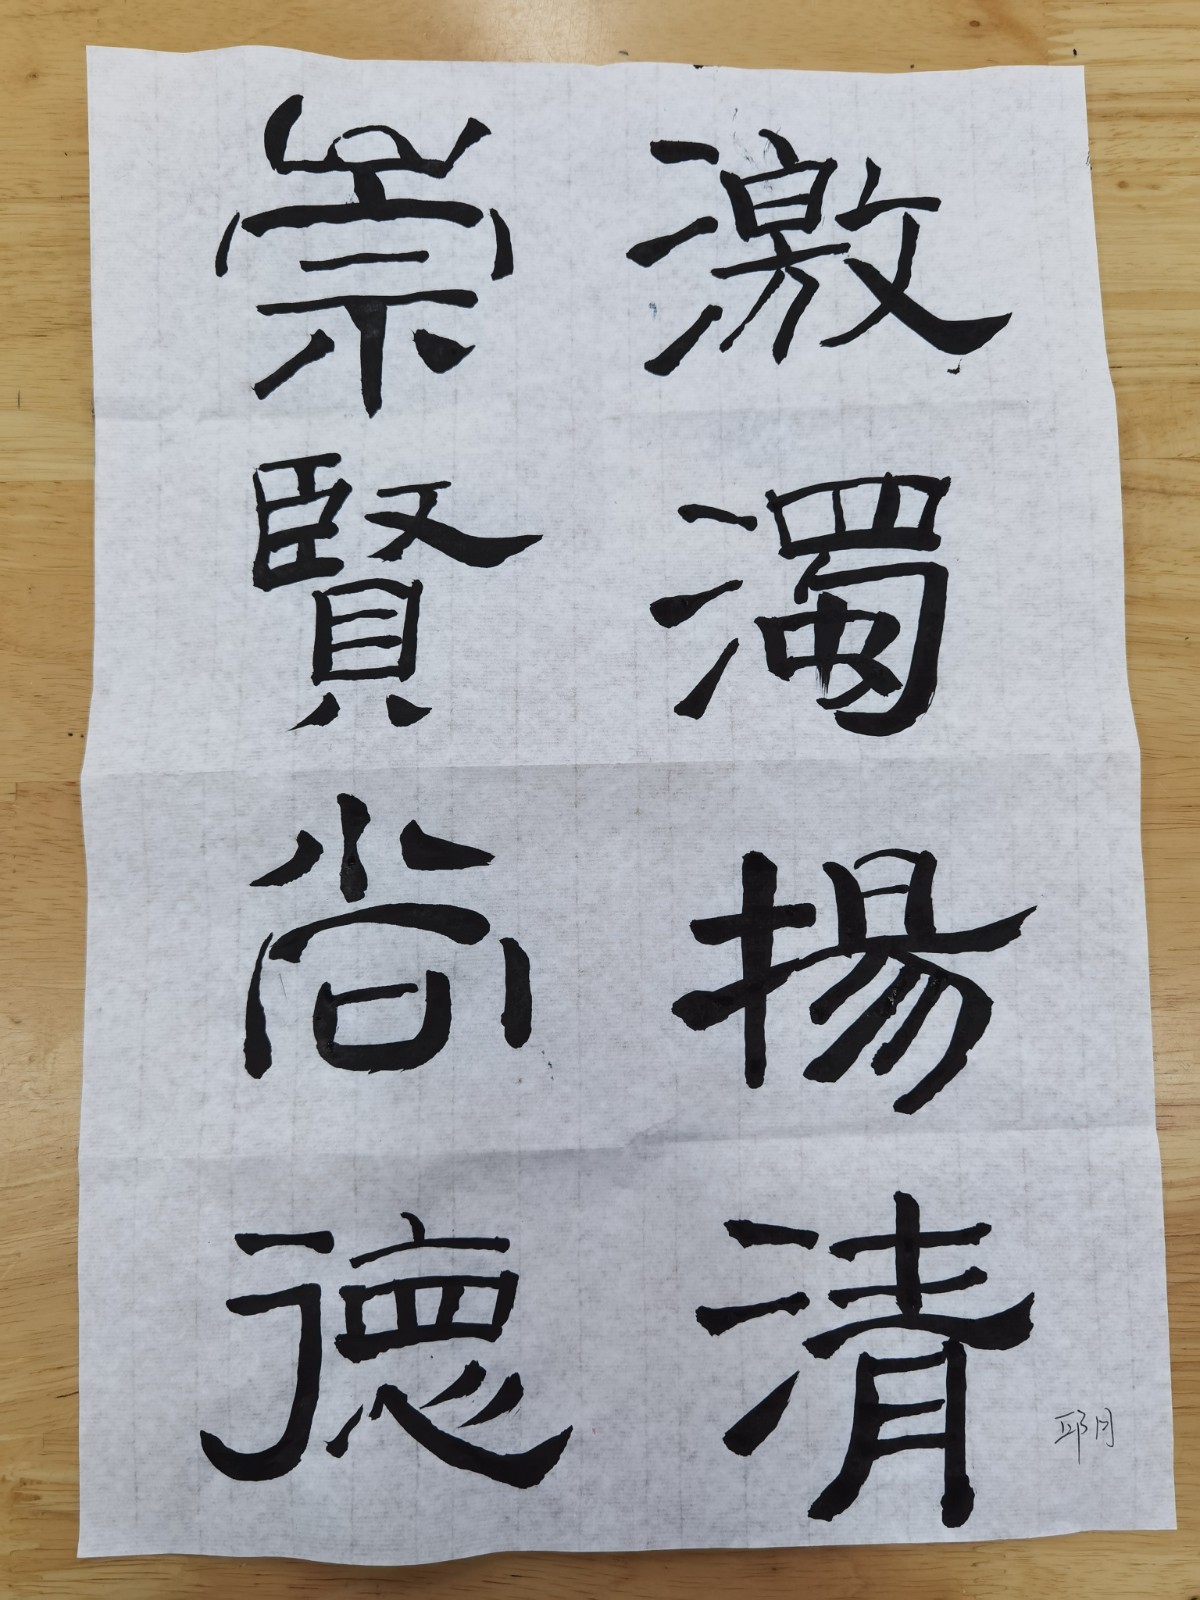 激濁揚清
崇賢尚德
邱月